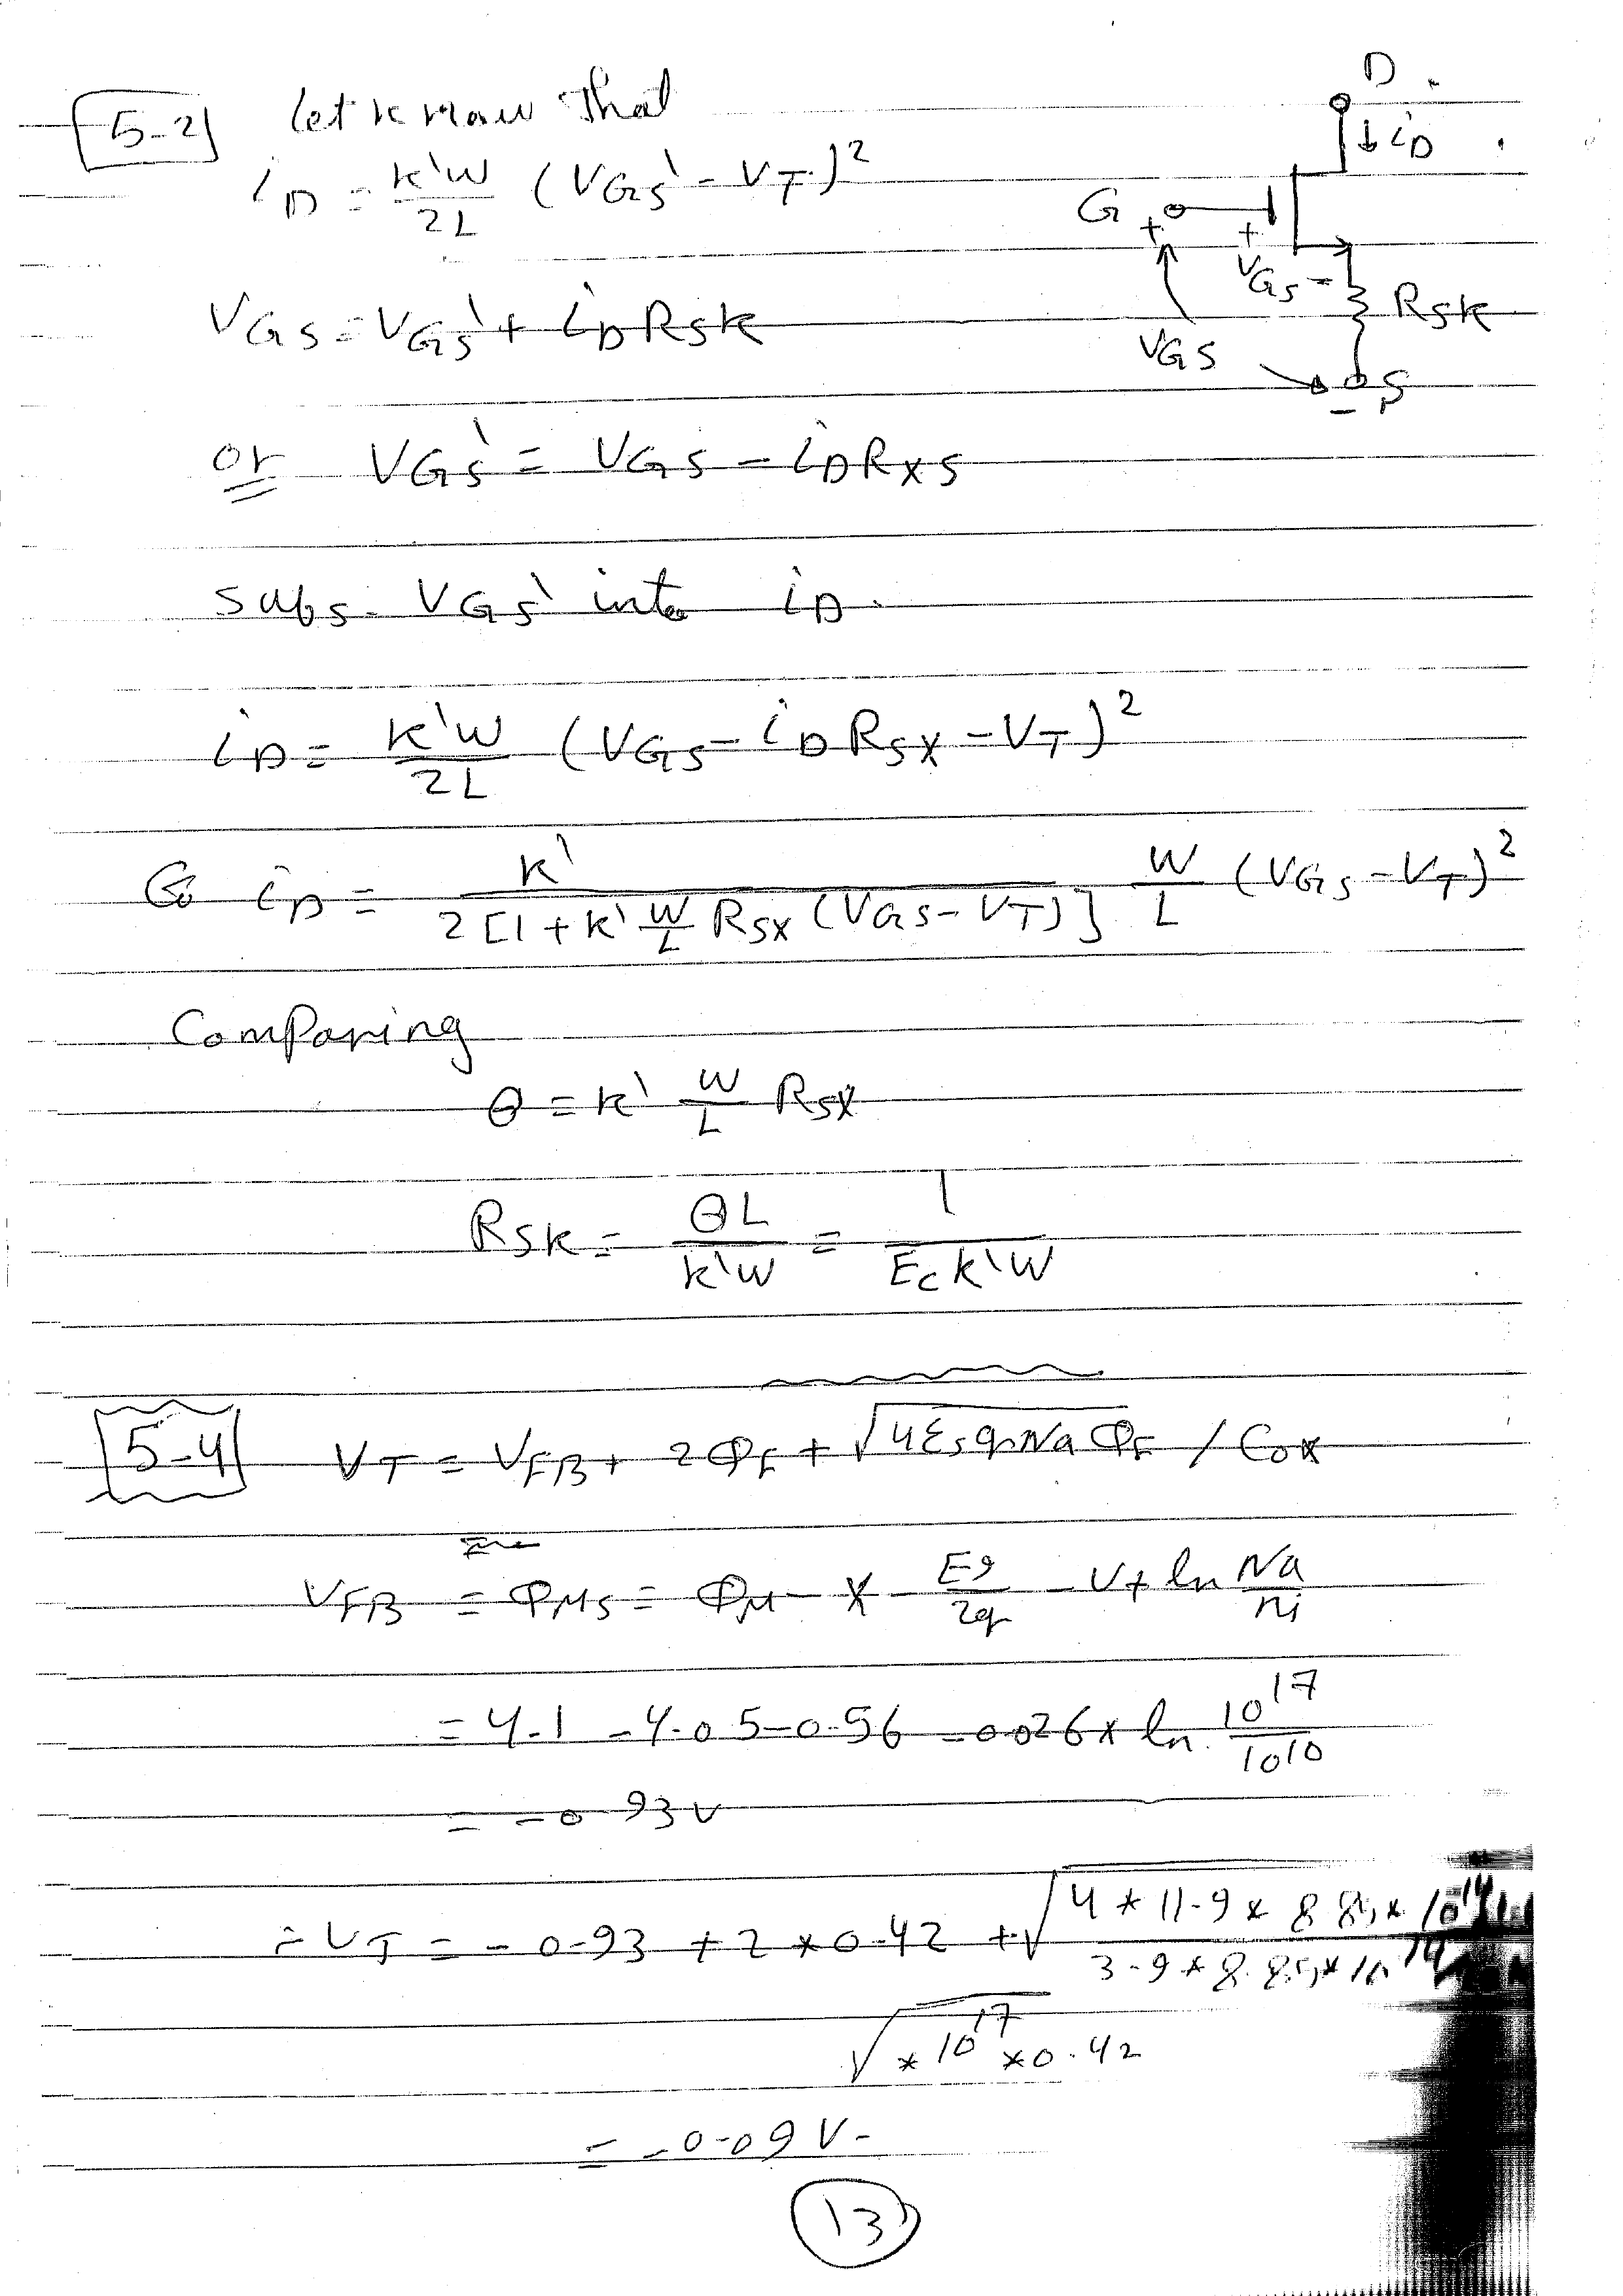 5-2 let know that
i_D = K'W / 2L (V_GS' - V_T)²
V_GS = V_GS' + i_D R_SK
or V_GS' = V_GS - i_D R_XS
subs. V_GS' into i_D.
i_D = K'W / 2L (V_GS - i_D R_SX - V_T)²
So i_D = K' / 2[1 + K' W/L R_SX (V_GS - V_T)] W/L (V_GS - V_T)²
Comparing
θ = K' W/L R_SX
R_SK = θL / K'W = 1 / E_C K'W
D
↓ i_D
G + +
V_GS - R_SK
V_GS
- S
5-4 V_T = V_FB + 2Φ_F + √4ε_s q Na Φ_F / Cox
V_FB = Φ_MS = Φ_M - X - Eg/2q - V_t ln Na/ni
= 4.1 - 4.05 - 0.56 - 0.026 * ln 10^17/10^10
= -0.93 V
∴ V_T = -0.93 + 2 * 0.42 + √ 4 * 11.9 * 8.85 * 10^-14 / 3.9 * 8.85 * 10^-14
√ * 10^17 * 0.42
= -0.09 V.
13